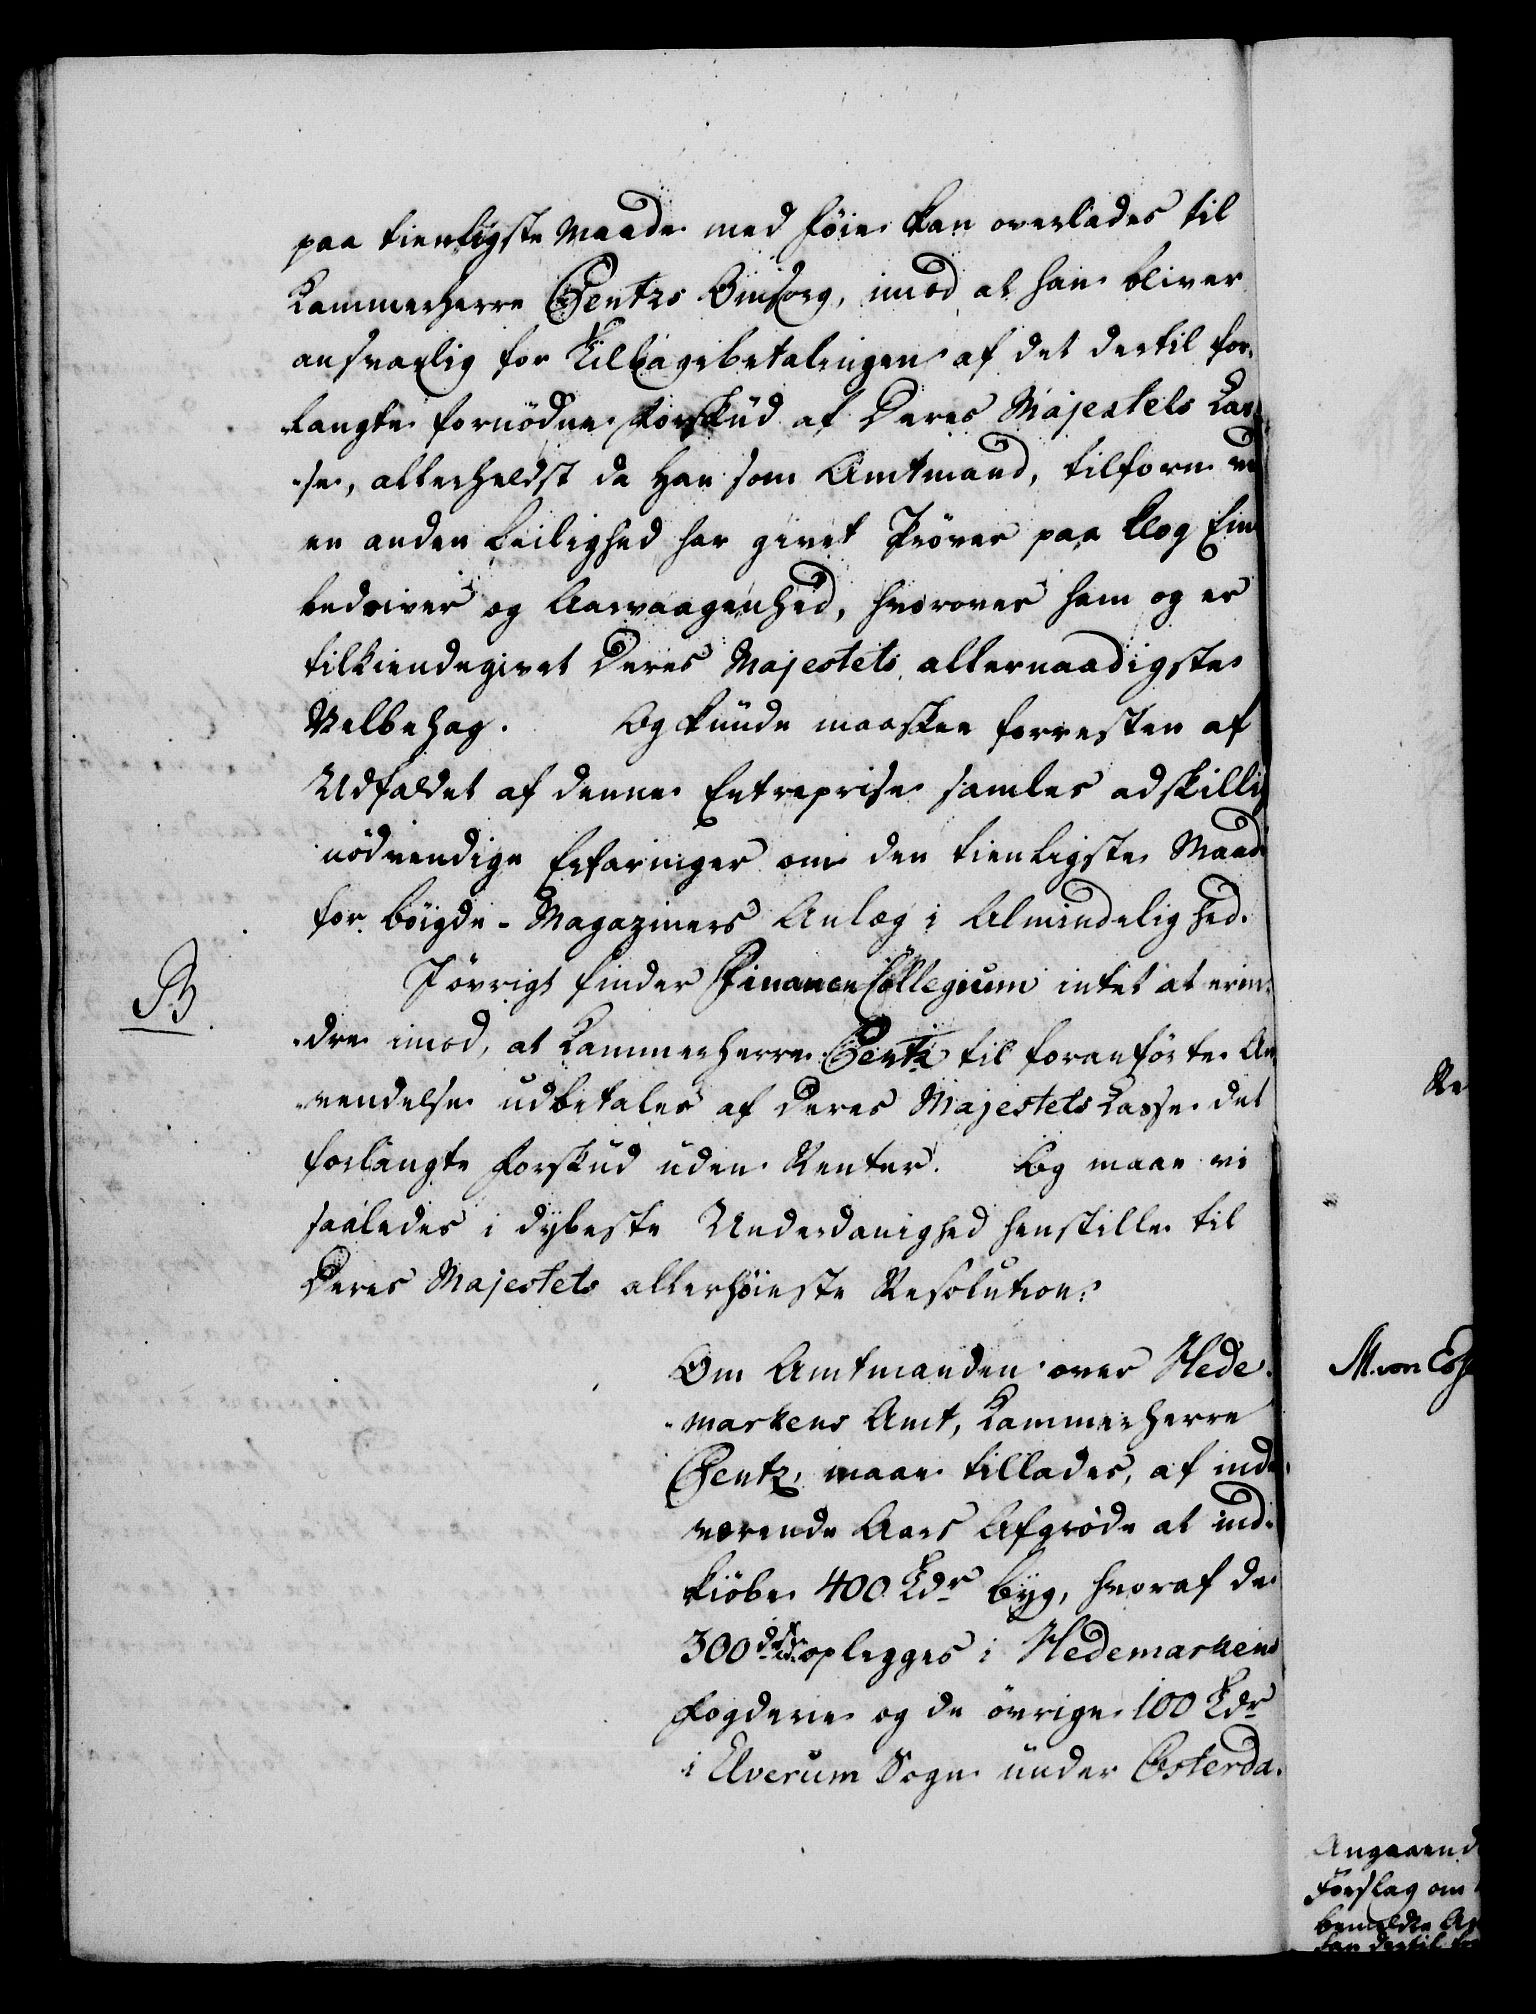 paa tienligste Maade med Føie kan overlades til
Kammerherre Pentzs Omsorg, imod at han bliver
ansvarlig for Tilbagebetalingen af det dertil for-
langte fornødne Forskud af Deres Majestets Cas-
se, allerhelst da han som Amtmand, tilforn ved
en anden Leilighed har givet Prøver paa klog Ein-
bedriver og Aarvaagenhed, hvorover ham og er
tilkiendegivet Deres Majestets allernaadigste
Velbehag. Og kunde maaskee forresten af
Udfaldet af denne Entreprise samles adskillig
nødvendige Erfaringer om den tienligste Maade
for Bøigde-Magaziners Anlæg i Almindelighed.
I øvrigt finder Finance Collegium intet at erin-
B
dre imod, at Kammerherre Pentz til foranførte An-
vendelse udbetales af Deres Majestets Casse det
forlangte Forskud uden Renter. Og maae vi
saaledes i dybeste Underdanighed henstille til
Deres Majestets allerhøieste Resolution:
Om Amtmanden over Hede-
markens Amt, Kammerherre
Pentz, maae tillades, af inde-
værende Aars Afgrøde at ind-
kiøbe 400 Tdr Byg, hvoraf de
300 Tdr oplegges i Hedemarkens
Fogderie og de øvrige 100 Tdr
i Elverum Sogn under Østerda-
Re
M. von Es
Angaaend
Forslag om
bemeldte A